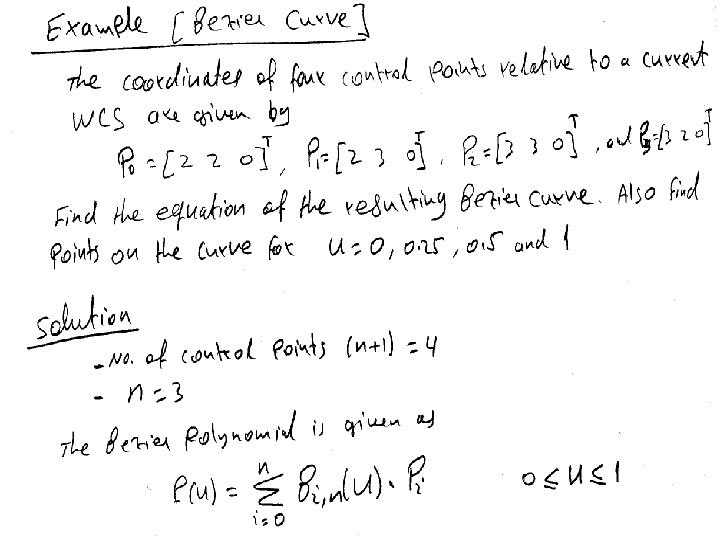 Example [Bezier Curve]
The coordinates of four control points relative to a current
WCS are given by
P₀ = [2 2 0]ᵀ, P₁ = [2 3 0]ᵀ, P₂ = [3 3 0]ᵀ, and P₃ = [3 2 0]ᵀ
Find the equation of the resulting Bezier curve. Also find
points on the curve for u = 0, 0.25, 0.5 and 1
Solution
- No. of control points (n+1) = 4
- n = 3
The Bezier Polynomial is given as
P(u) = ∑ᵢ₌₀ⁿ Bᵢ,ₙ(u) · Pᵢ 0 ≤ u ≤ 1